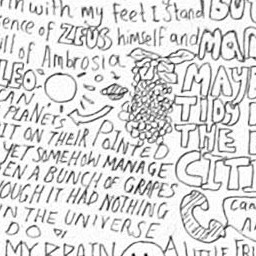 with my feet I stand
ence of ZEUS himself and
ll of Ambrosia
LEO
CAN
PLANETS
IT ON THEIR POINTED
YET SOMEHOW MANAGE
EN A BUNCH OF GRAPES
OUGH IT HAD NOTHING
IN THE UNIVERSE
DO
MY BRAIN
BUT
MAN
MAYB
TIDY
THE
CITI
Can
A LITTLE FRI